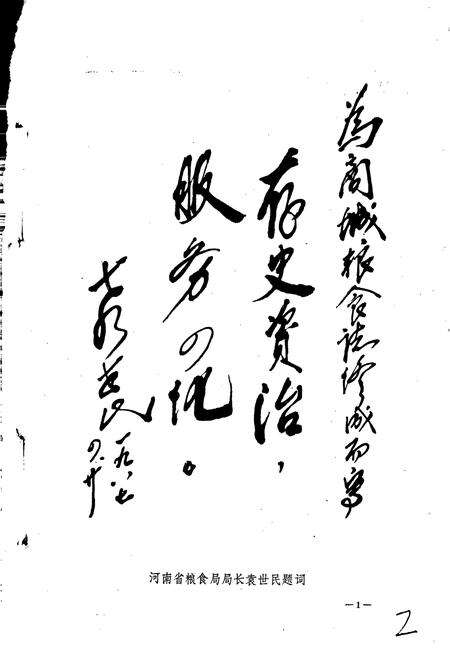 為商城粮食志修成而写
存史資治，
服务四化。
袁世民
一九八七
四.廿
河南省粮食局局长袁世民题词
—1—
2